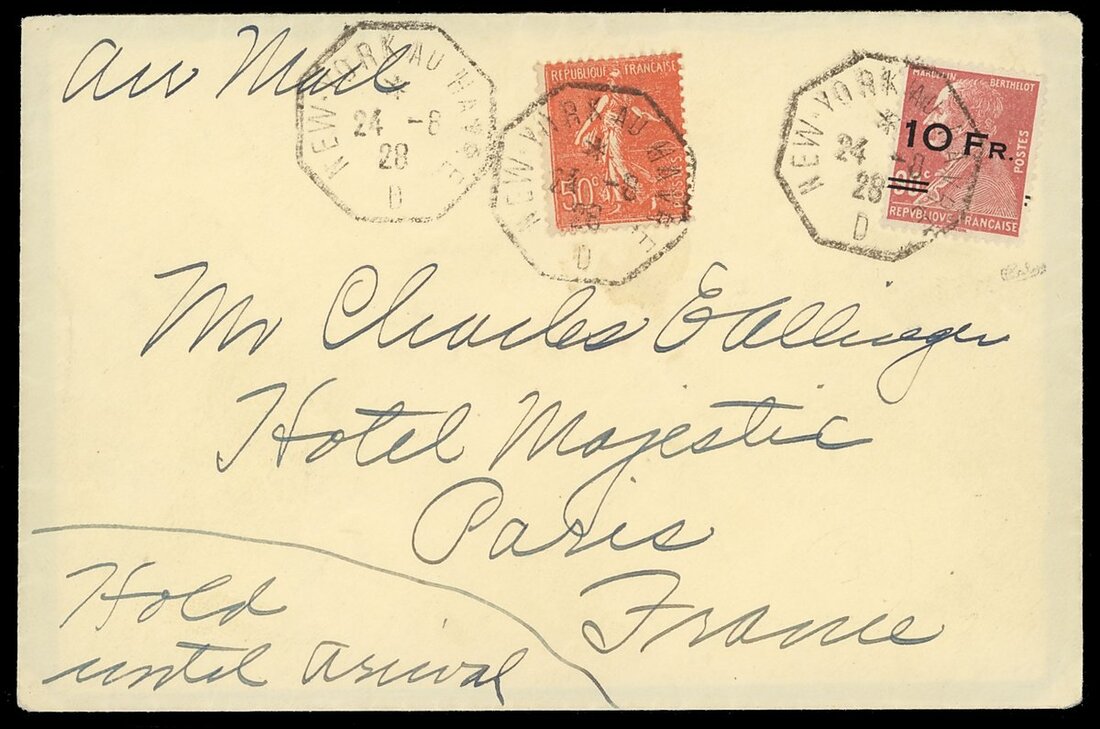 Air Mail
NEW-YORK AU HAVRE
24 -8
28
D
REPUBLIQUE FRANÇAISE
50 c
NEW-YORK AU HAVRE
24 -8
28
D
MARCELIN BERTHELOT
10 FR.
POSTES
REPVBLIQVE FRANÇAISE
NEW-YORK AU HAVRE
24 -8
28
D
Mr Charles
Hotel Majestic
Paris
France
Hold
until arival